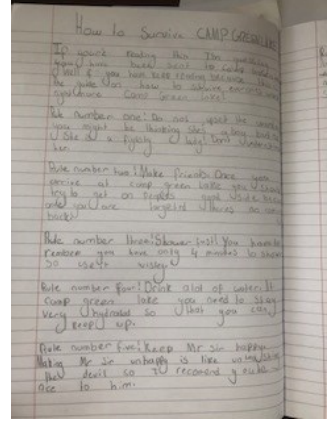 How to Survive CAMP GREEN LAKE
If you're reading this I'm guessing
you have been sent to camp
hell if you keep reading because this
the guide on how to survive everyone
Camp Green Lake!
Rule number one! Do not upset the warden
you might be thinking she's a
She is a lady! Don't
her.
Rule number two! Make friends! Once you
arrive at camp green lake you should
try to get on peoples good side
once you are targeted theres no
back!
Rule number three! Shower fast! You have to
you have only 4 minutes to shower
so use it wisley.
Rule number four! Drink alot of water! At
camp green lake you need to stay
very hydrated so that you can
keep up.
Rule number five! Keep Mr sir happy.
Making Mr Sir unhappy is like
the devil so I recomend you be
to him.